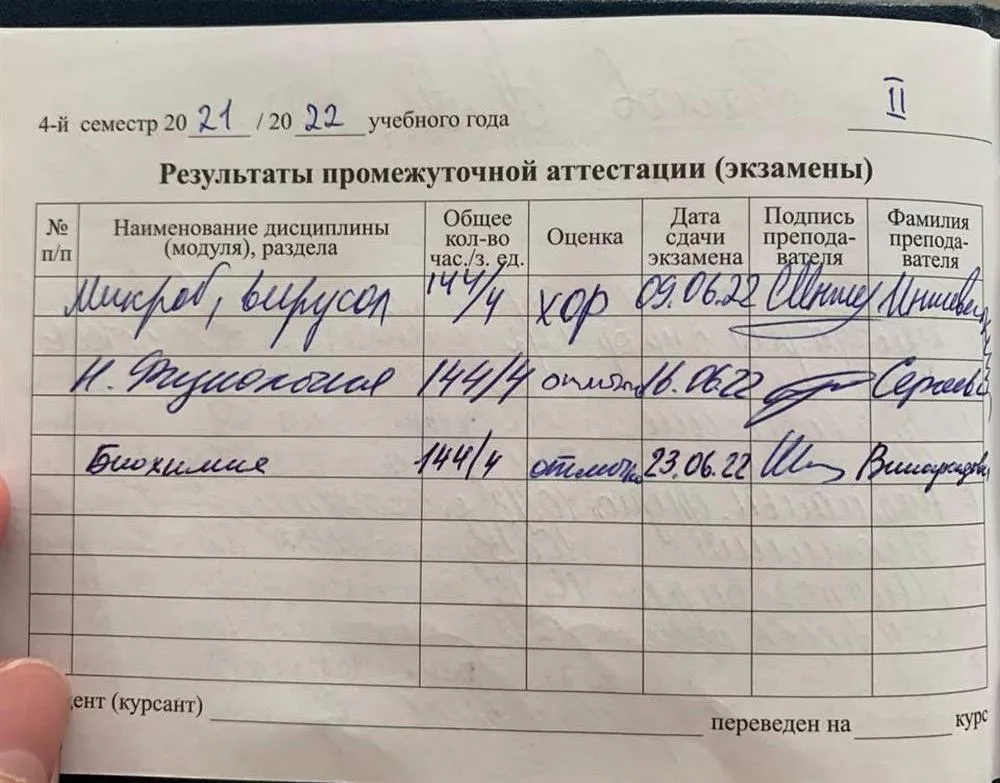 II
4-й семестр 20 21 / 20 22 учебного года
Результаты промежуточной аттестации (экзамены)
№ п/п Наименование дисциплины (модуля), раздела Общее кол-во час./з. ед. Оценка Дата сдачи экзамена Подпись препода-вателя Фамилия препода-вателя
Микроб, вирусол 144/4 хор 09.06.22
Н. Физиология 144/4 отлично 16.06.22 Сергеев
Биохимия 144/4 отлично 23.06.22
ент (курсант) переведен на курс